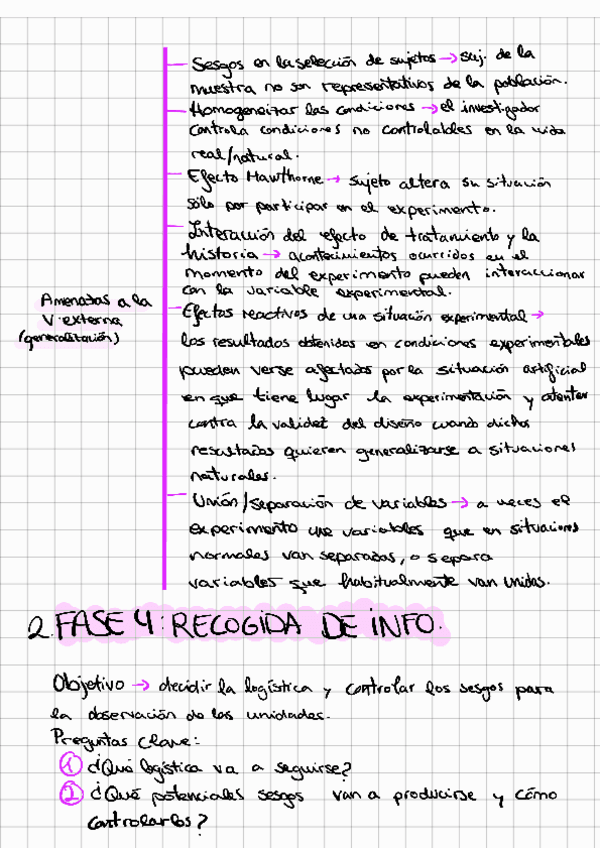 Sesgos en la selección de sujetos → suj. de la
muestra no son representativos de la población.
Homogeneizar las condiciones → el investigador
controla condiciones no controlables en la vida
real/natural.
Efecto Hawthorne → sujeto altera su situación
sólo por participar en el experimento.
Interacción del efecto de tratamiento y la
historia → acontecimientos ocurridos en el
momento del experimento pueden interaccionar
con la variable experimental.
Amenazas a la
V. externa
(generalización)
Efectos reactivos de una situación experimental →
los resultados obtenidos en condiciones experimentales
pueden verse afectados por la situación artificial
en que tiene lugar la experimentación y atentar
contra la validez del diseño cuando dichos
resultados quieren generalizarse a situaciones
naturales.
Unión/separación de variables → a veces el
experimento une variables que en situaciones
normales van separadas, o separa
variables que habitualmente van unidas.
2. FASE 4: RECOGIDA DE INFO.
Objetivo → decidir la logística y controlar los sesgos para
la observación de las unidades.
Preguntas clave:
1 ¿Qué logística va a seguirse?
2 ¿Qué potenciales sesgos van a producirse y cómo
controlarlos?